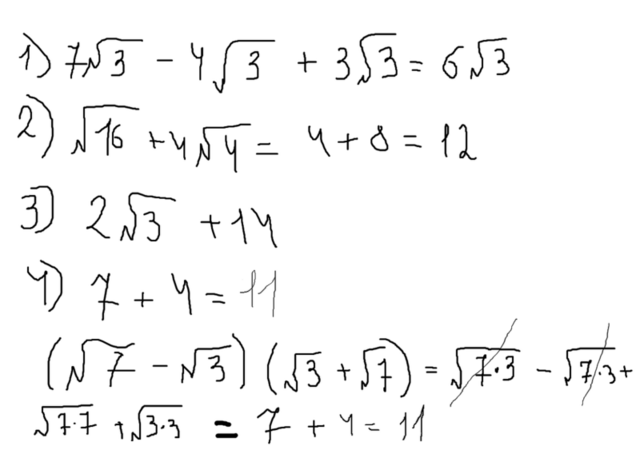 1) 7√3 - 4√3 + 3√3 = 6√3
2) √16 + 4√4 = 4 + 8 = 12
3) 2√3 + 14
4) 7 + 4 = 11
(√7 - √3) (√3 + √7) = √7·3 - √7·3 +
√7·7 + √3·3 = 7 + 4 = 11